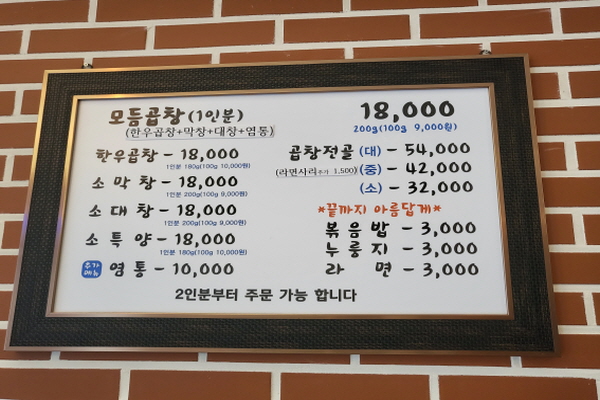 모듬곱창(1인분) 18,000
(한우곱창+막창+대창+염통) 200g(100g 9,000원)
한우곱창 - 18,000
1인분 180g(100g 10,000원)
소 막 창 - 18,000
1인분 200g(100g 9,000원)
소 대 창 - 18,000
1인분 200g(100g 9,000원)
소 특 양 - 18,000
1인분 180g(100g 10,000원)
추가메뉴 염 통 - 10,000
곱창전골 (대) - 54,000
(라면사리추가 1,500) (중) - 42,000
(소) - 32,000
*끝까지 아름답게*
볶 음 밥 - 3,000
누 룽 지 - 3,000
라 면 - 3,000
2인분부터 주문 가능 합니다